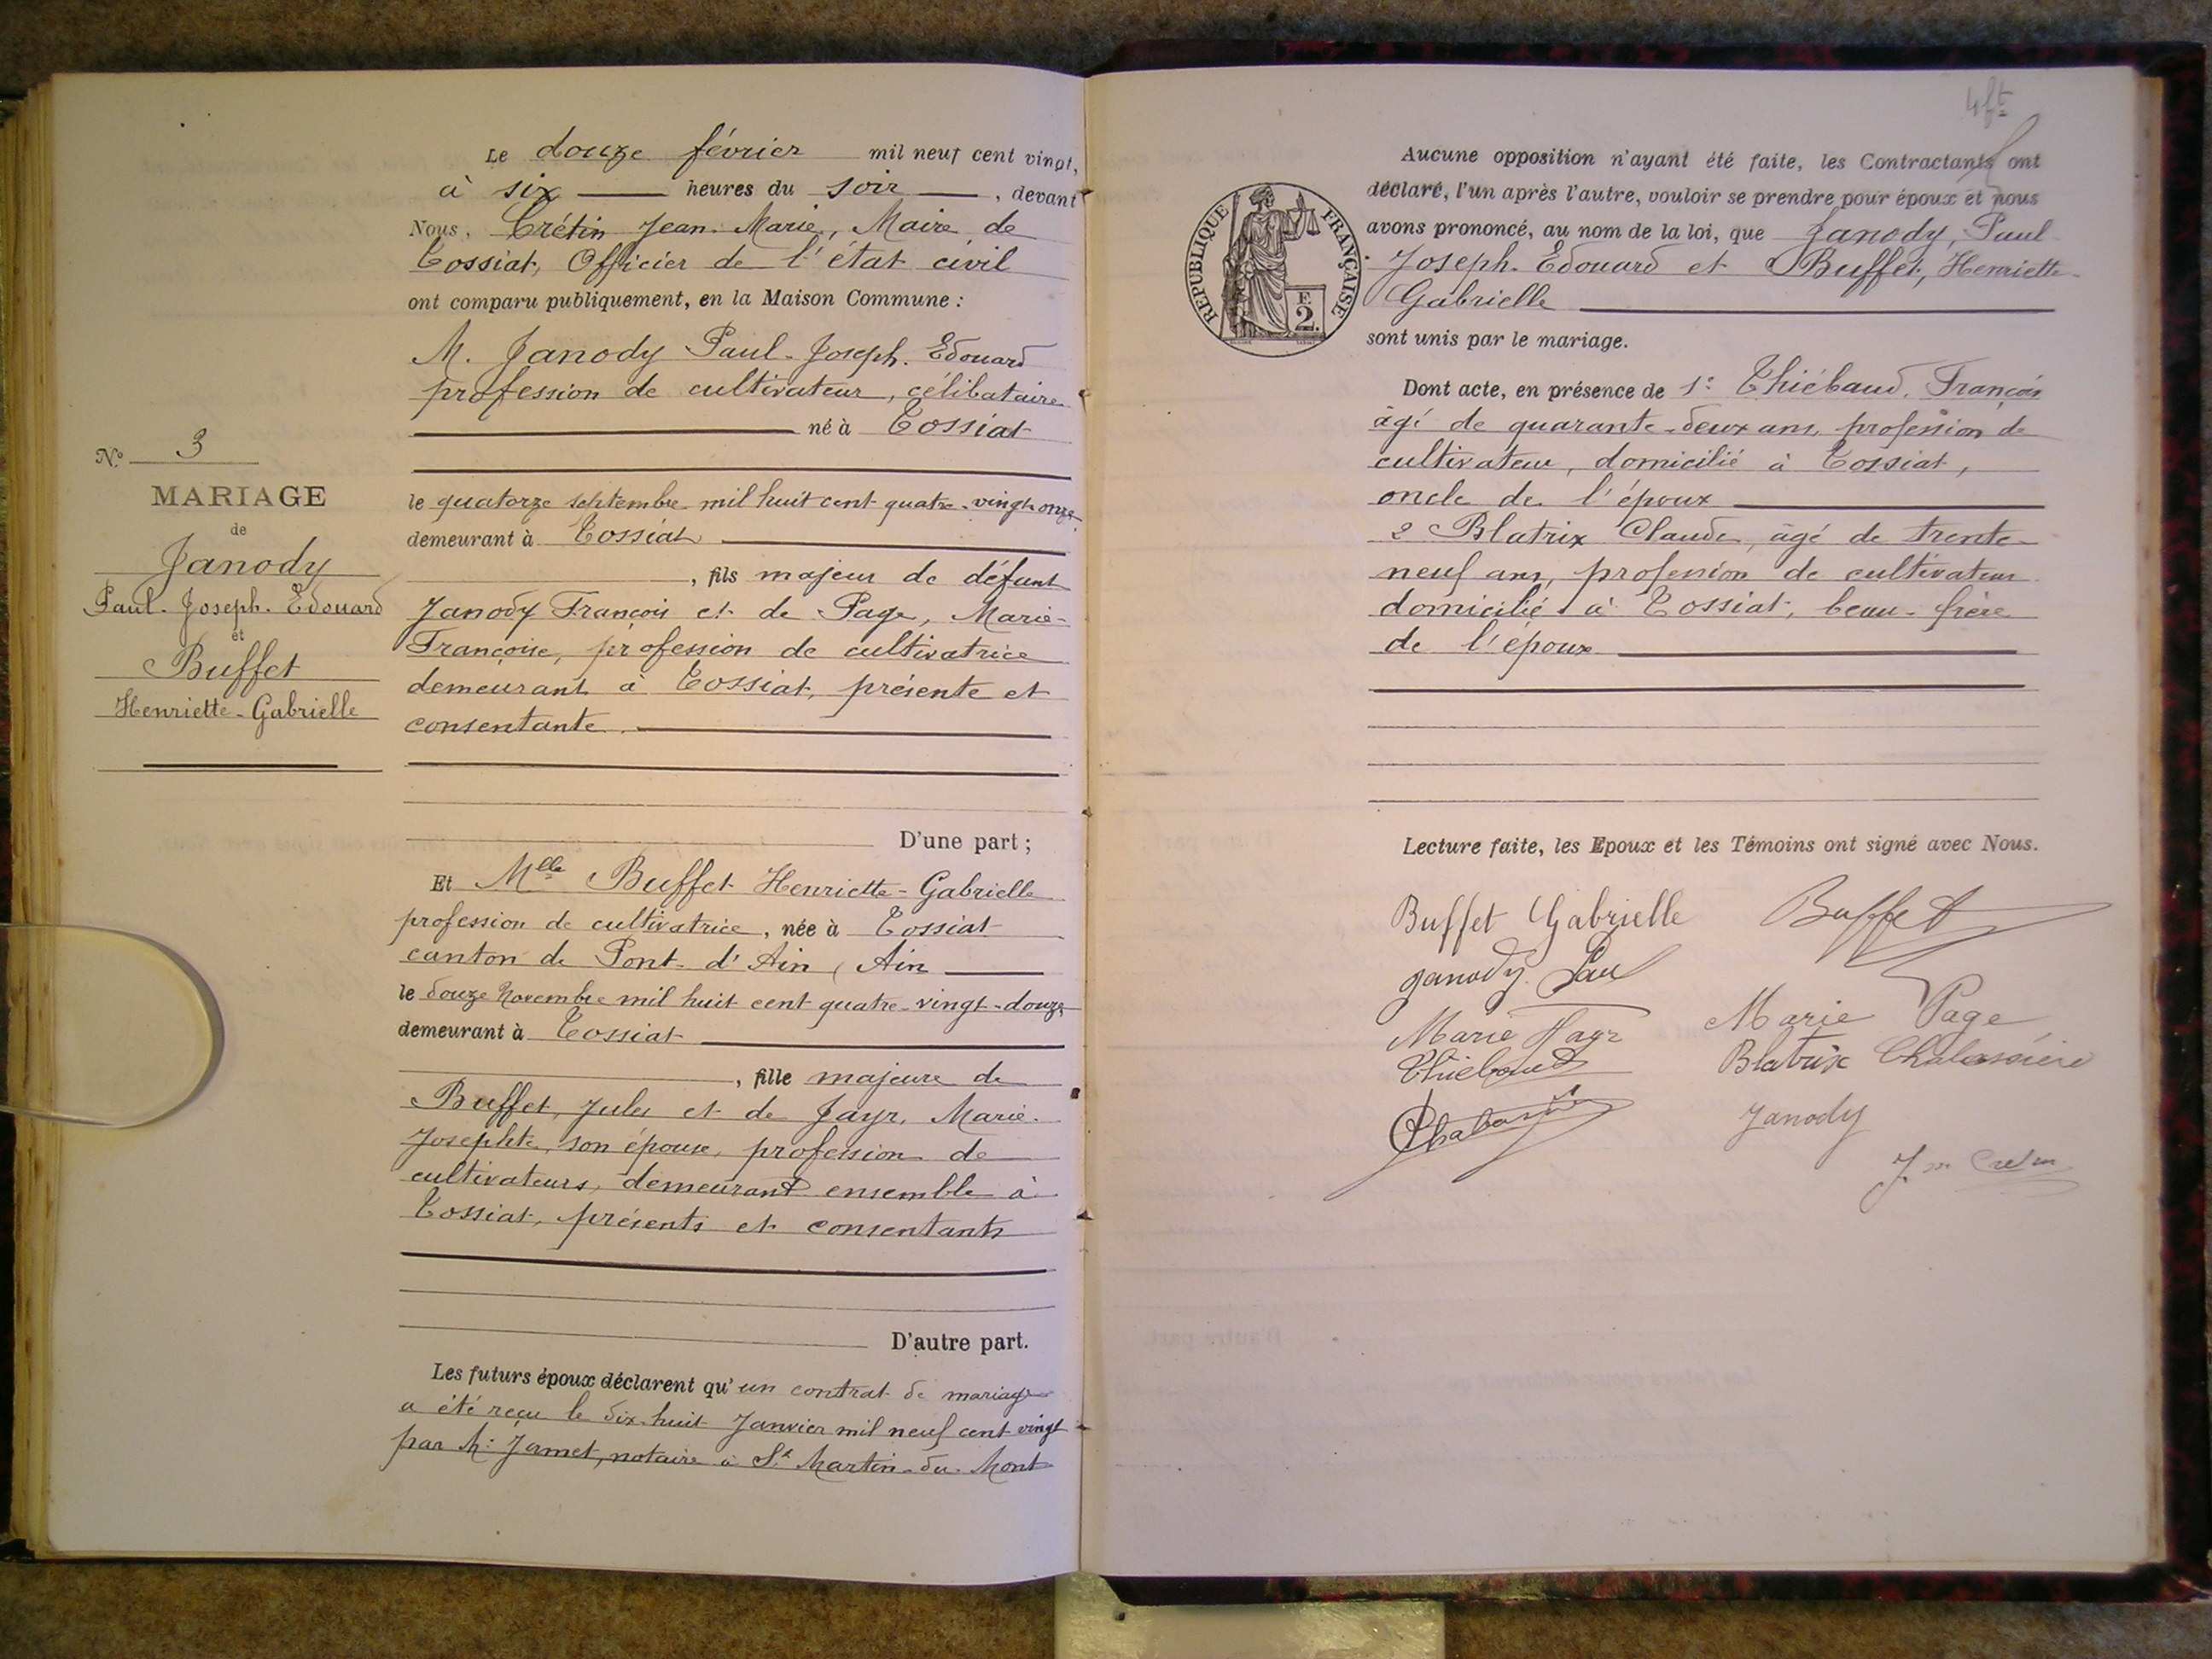 N.º 3
MARIAGE
de
Janody
Paul-Joseph-Edouard
et
Buffet
Henriette-Gabrielle
Le douze février mil neuf cent vingt,
à six heures du soir, devant
Nous, Crétin Jean-Marie, Maire de
Tossiat, Officier de l'état civil
ont comparu publiquement, en la Maison Commune :
M. Janody Paul-Joseph-Edouard
profession de cultivateur, célibataire
né à Tossiat
le quatorze septembre mil huit cent quatre-vingt-onze
demeurant à Tossiat
, fils majeur de défunt
Janody François et de Page, Marie-
Françoise, profession de cultivatrice
demeurant à Tossiat, présente et
consentante.
D'une part ;
Et Mlle Buffet Henriette-Gabrielle
profession de cultivatrice, née à Tossiat
canton de Pont-d'Ain (Ain
le douze Novembre mil huit cent quatre-vingt-douze
demeurant à Tossiat
, fille majeure de
Buffet, Jules et de Jayr, Marie-
Josephte, son épouse, profession de
cultivateurs, demeurant ensemble à
Tossiat, présents et consentants
D'autre part.
Les futurs époux déclarent qu'un contrat de mariage
a été reçu le dix-huit Janvier mil neuf cent vingt
par Mᵉ Jamet, notaire à St Martin-du-Mont
4 ft
Aucune opposition n'ayant été faite, les Contractants ont
déclaré, l'un après l'autre, vouloir se prendre pour époux et nous
avons prononcé, au nom de la loi, que Janody, Paul-
Joseph-Edouard et Buffet, Henriette-
Gabrielle
sont unis par le mariage.
REPUBLIQUE FRANÇAISE
F.
2.
Dont acte, en présence de 1º Thiébaud, François
âgé de quarante-deux ans, profession de
cultivateur, domicilié à Tossiat,
oncle de l'époux
2 Blatrix Claude, âgé de trente-
neuf ans, profession de cultivateur
domicilié à Tossiat, beau-frère
de l'époux
Lecture faite, les Epoux et les Témoins ont signé avec Nous.
Buffet Gabrielle Buffet
Janody Paul
Marie Jayr Marie Page
Thiebaud Blatrix
Janody
J. M Cretin